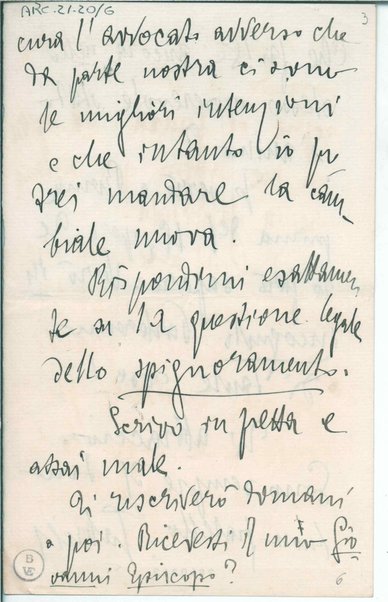 ARC-21.20/6
3
cura l'avvocato avverso che
da parte nostra ci sono
le migliori intenzioni
e che intanto io po
trei mandare la cam-
biale nuova.
Rispondimi esattamen
te su la questione legale
dello spignoramento.
Scrivo in fretta e
assai male.
Ti riscriverò domani
o poi. Ricevesti il mio Gio
vanni Episcopo?
6